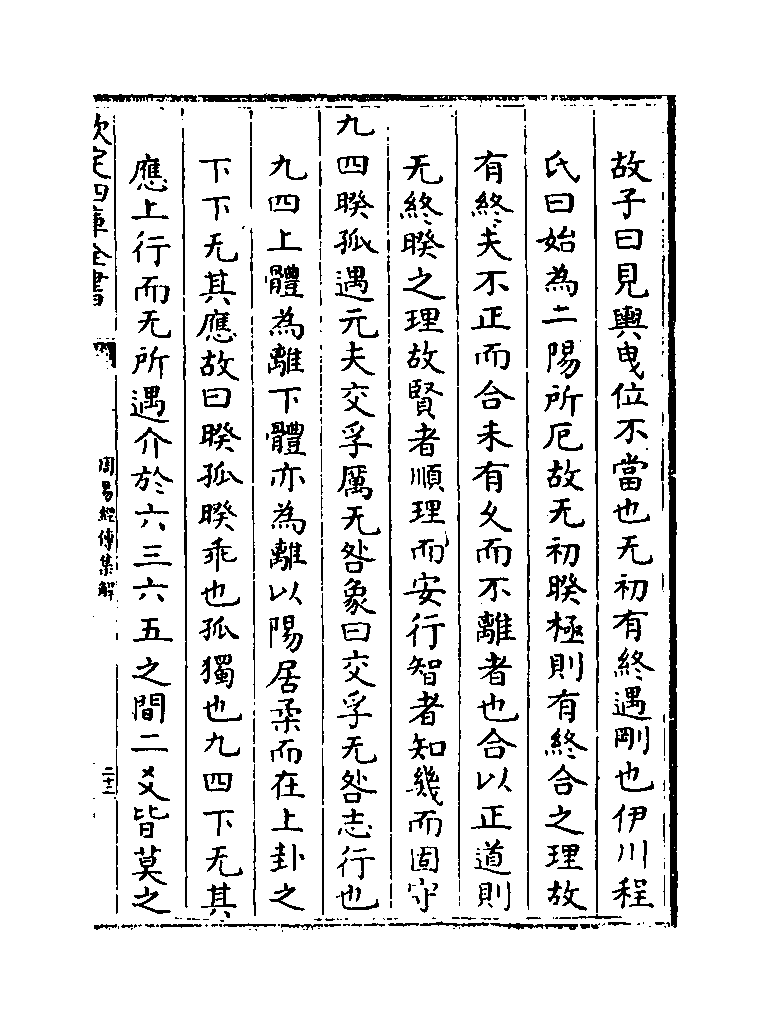 故子曰見輿曳位不當也无初有終遇剛也伊川程
氏曰始為二陽所厄故无初暌極則有終合之理故
有終夫不正而合未有久而不離者也合以正道則
无終暌之理故賢者順理而安行智者知幾而固守
九四暌孤遇元夫交孚厲无咎象曰交孚无咎志行也
九四上體為離下體亦為離以陽居柔而在上卦之
下下无其應故曰暌孤暌乖也孤獨也九四下无其
應上行而无所遇介於六三六五之間二爻皆莫之
欽定四庫全書
周易經傳集解
二十二